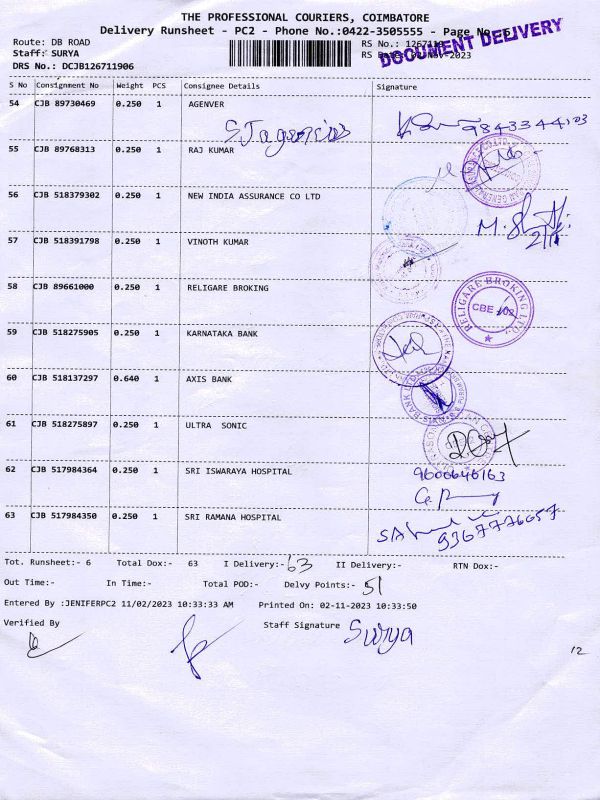 THE PROFESSIONAL COURIERS, COIMBATORE
Delivery Runsheet - PC2 - Phone No.:0422-3505555 - Page No
DOCUMENT DELIVERY
Route: DB ROAD
Staff: SURYA
DRS No.: DCJB126711906
RS No.:
S No Consignment No Weight PCS Consignee Details Signature
54 CJB 89730469 0.250 1 AGENVER
55 CJB 89768313 0.250 1 RAJ KUMAR
56 CJB 518379302 0.250 1 NEW INDIA ASSURANCE CO LTD
57 CJB 518391798 0.250 1 VINOTH KUMAR
58 CJB 89661000 0.250 1 RELIGARE BROKING
RELIGARE BROKING LTD.
59 CJB 518275905 0.250 1 KARNATAKA BANK
60 CJB 518137297 0.640 1 AXIS BANK
61 CJB 518275897 0.250 1 ULTRA SONIC
62 CJB 517984364 0.250 1 SRI ISWARAYA HOSPITAL
9600646163
63 CJB 517984350 0.250 1 SRI RAMANA HOSPITAL
Tot. Runsheet:- 6 Total Dox:- 63 I Delivery:- 63 II Delivery:- RTN Dox:-
Out Time:- In Time:- Total POD:- Delvy Points:- 51
Entered By :JENIFERPC2 11/02/2023 10:33:33 AM Printed On: 02-11-2023 10:33:50
Verified By Staff Signature Surya
12